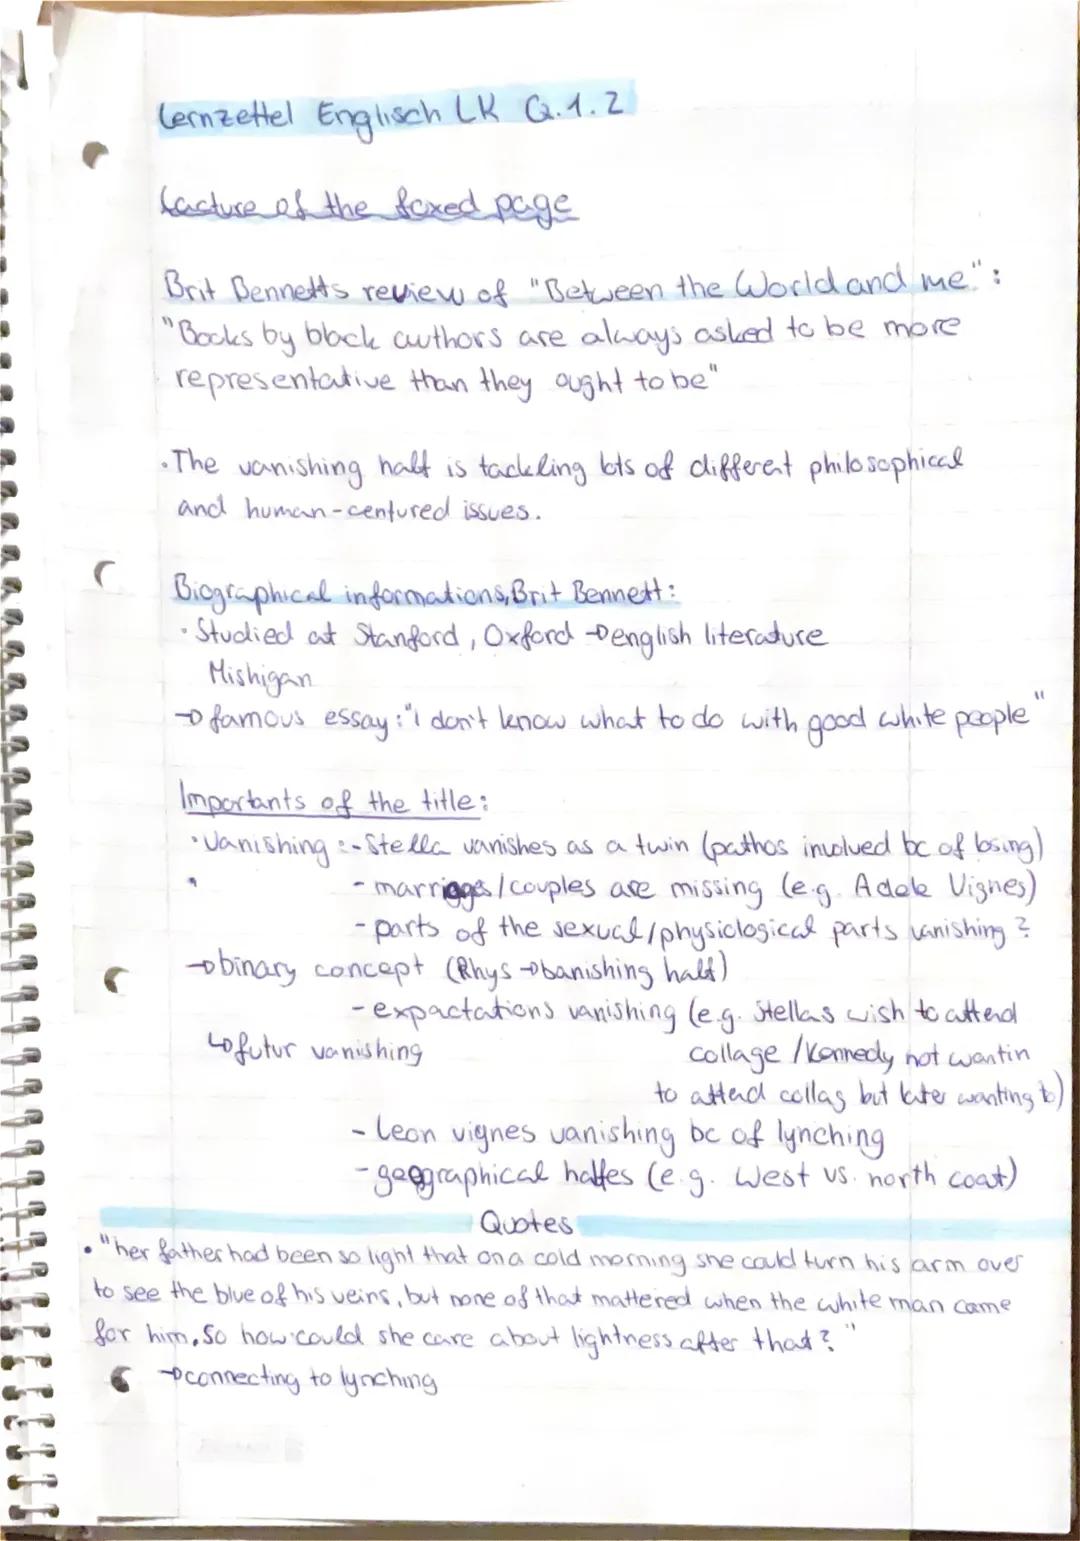 Lernzettel Englisch LK Q.1.2
Lacture of the foxed page
Brit Bennetts review of "Between the World and me":
"Books by black authors are always asked to be more
representative than they ought to be"
·The vanishing half is tackling lots of different philosophical
and human-centured issues.
Biographical informations, Brit Bennett:
· Studied at Stanford, Oxford → english literature
Mishigan
→ famous essay: "I don't know what to do with good white people"
Importants of the title:
· Vanishing : - Stella vanishes as a twin (pathos involved bc of losing)
- marriages / couples are missing (e.g. Adele Vignes)
- parts of the sexual/physiological parts vanishing ?
→ binary concept (Rhys → banishing half)
- expactations vanishing (e.g. Stellas wish to attend
↳ futur vanishing collage / Kennedy not wantin
to attend collag but later wanting to)
- leon vignes vanishing bc of lynching
- geographical halfes (e.g. West vs. north coat)
Quotes
· "her father had been so light that on a cold morning she could turn his arm over
to see the blue of his veins, but none of that mattered when the white man came
for him. So how could she care about lightness after that? "
→ connecting to lynching